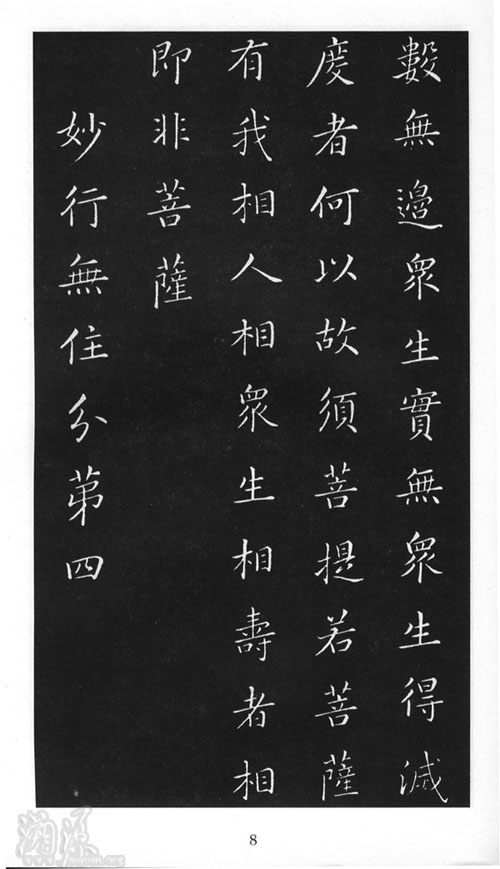 數無邊眾生實無眾生得滅
度者何以故須菩提若菩薩
有我相人相眾生相壽者相
即非菩薩
妙行無住分第四
8